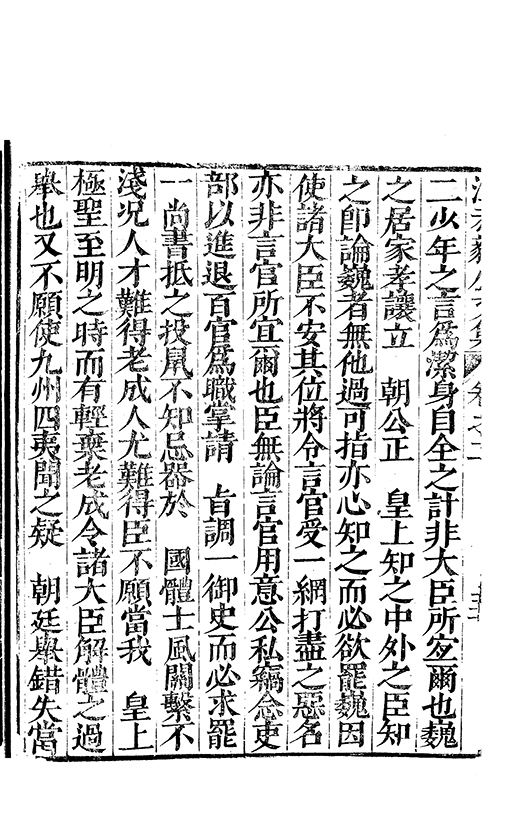 二少年之言爲潔身自全之計非大臣所宐爾也巍
之居家孝讓立 朝公正 皇上知之中外之臣知
之卽論巍者無他過可指亦心知之而必欲罷巍因
使諸大臣不安其位將令言官受一網打盡之惡名
亦非言官所宜爾也臣無論言官用意公私竊念吏
部以進退百官爲職掌請 旨調一御史而必求罷
一尚書抵之投鼠不知忌器於 國體士風關繫不
淺况人才難得老成人尤難得臣不願當我 皇上
極聖至明之時而有輕棄老成令諸大臣解體之過
舉也又不願使九州四夷聞之疑 朝廷舉錯失當